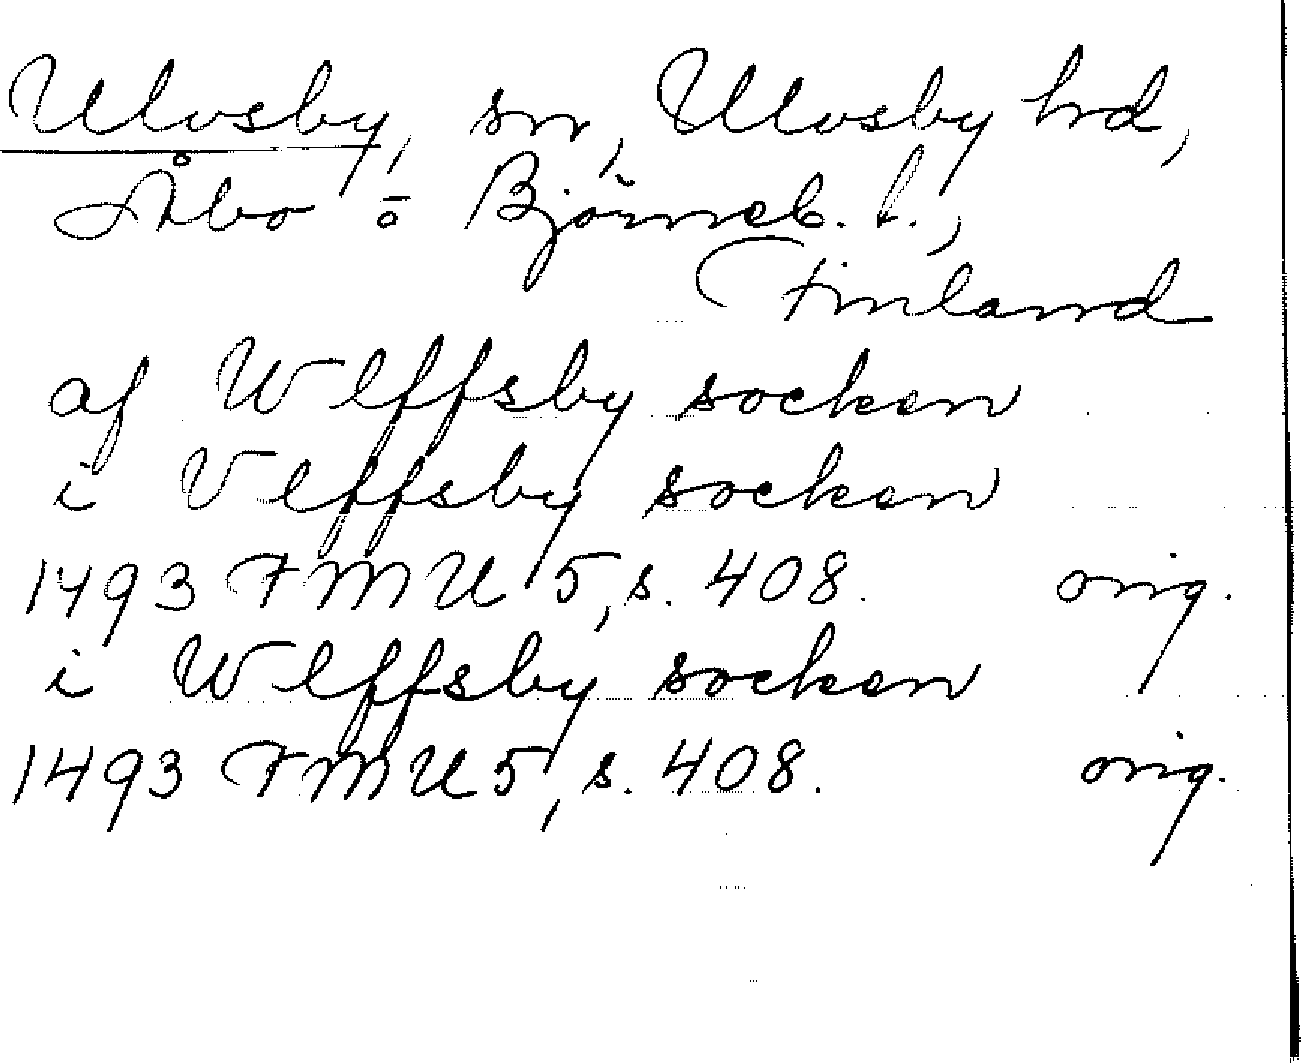 Ulvsby, sn, Ulvsby hrd,
Åbo o Björneb. l.,
Finland
af Wlffsby socken
i Vlffsby socken
1493 FMU 5, s. 408. orig.
i Wlffsby socken
1493 FMU 5, s. 408. orig.